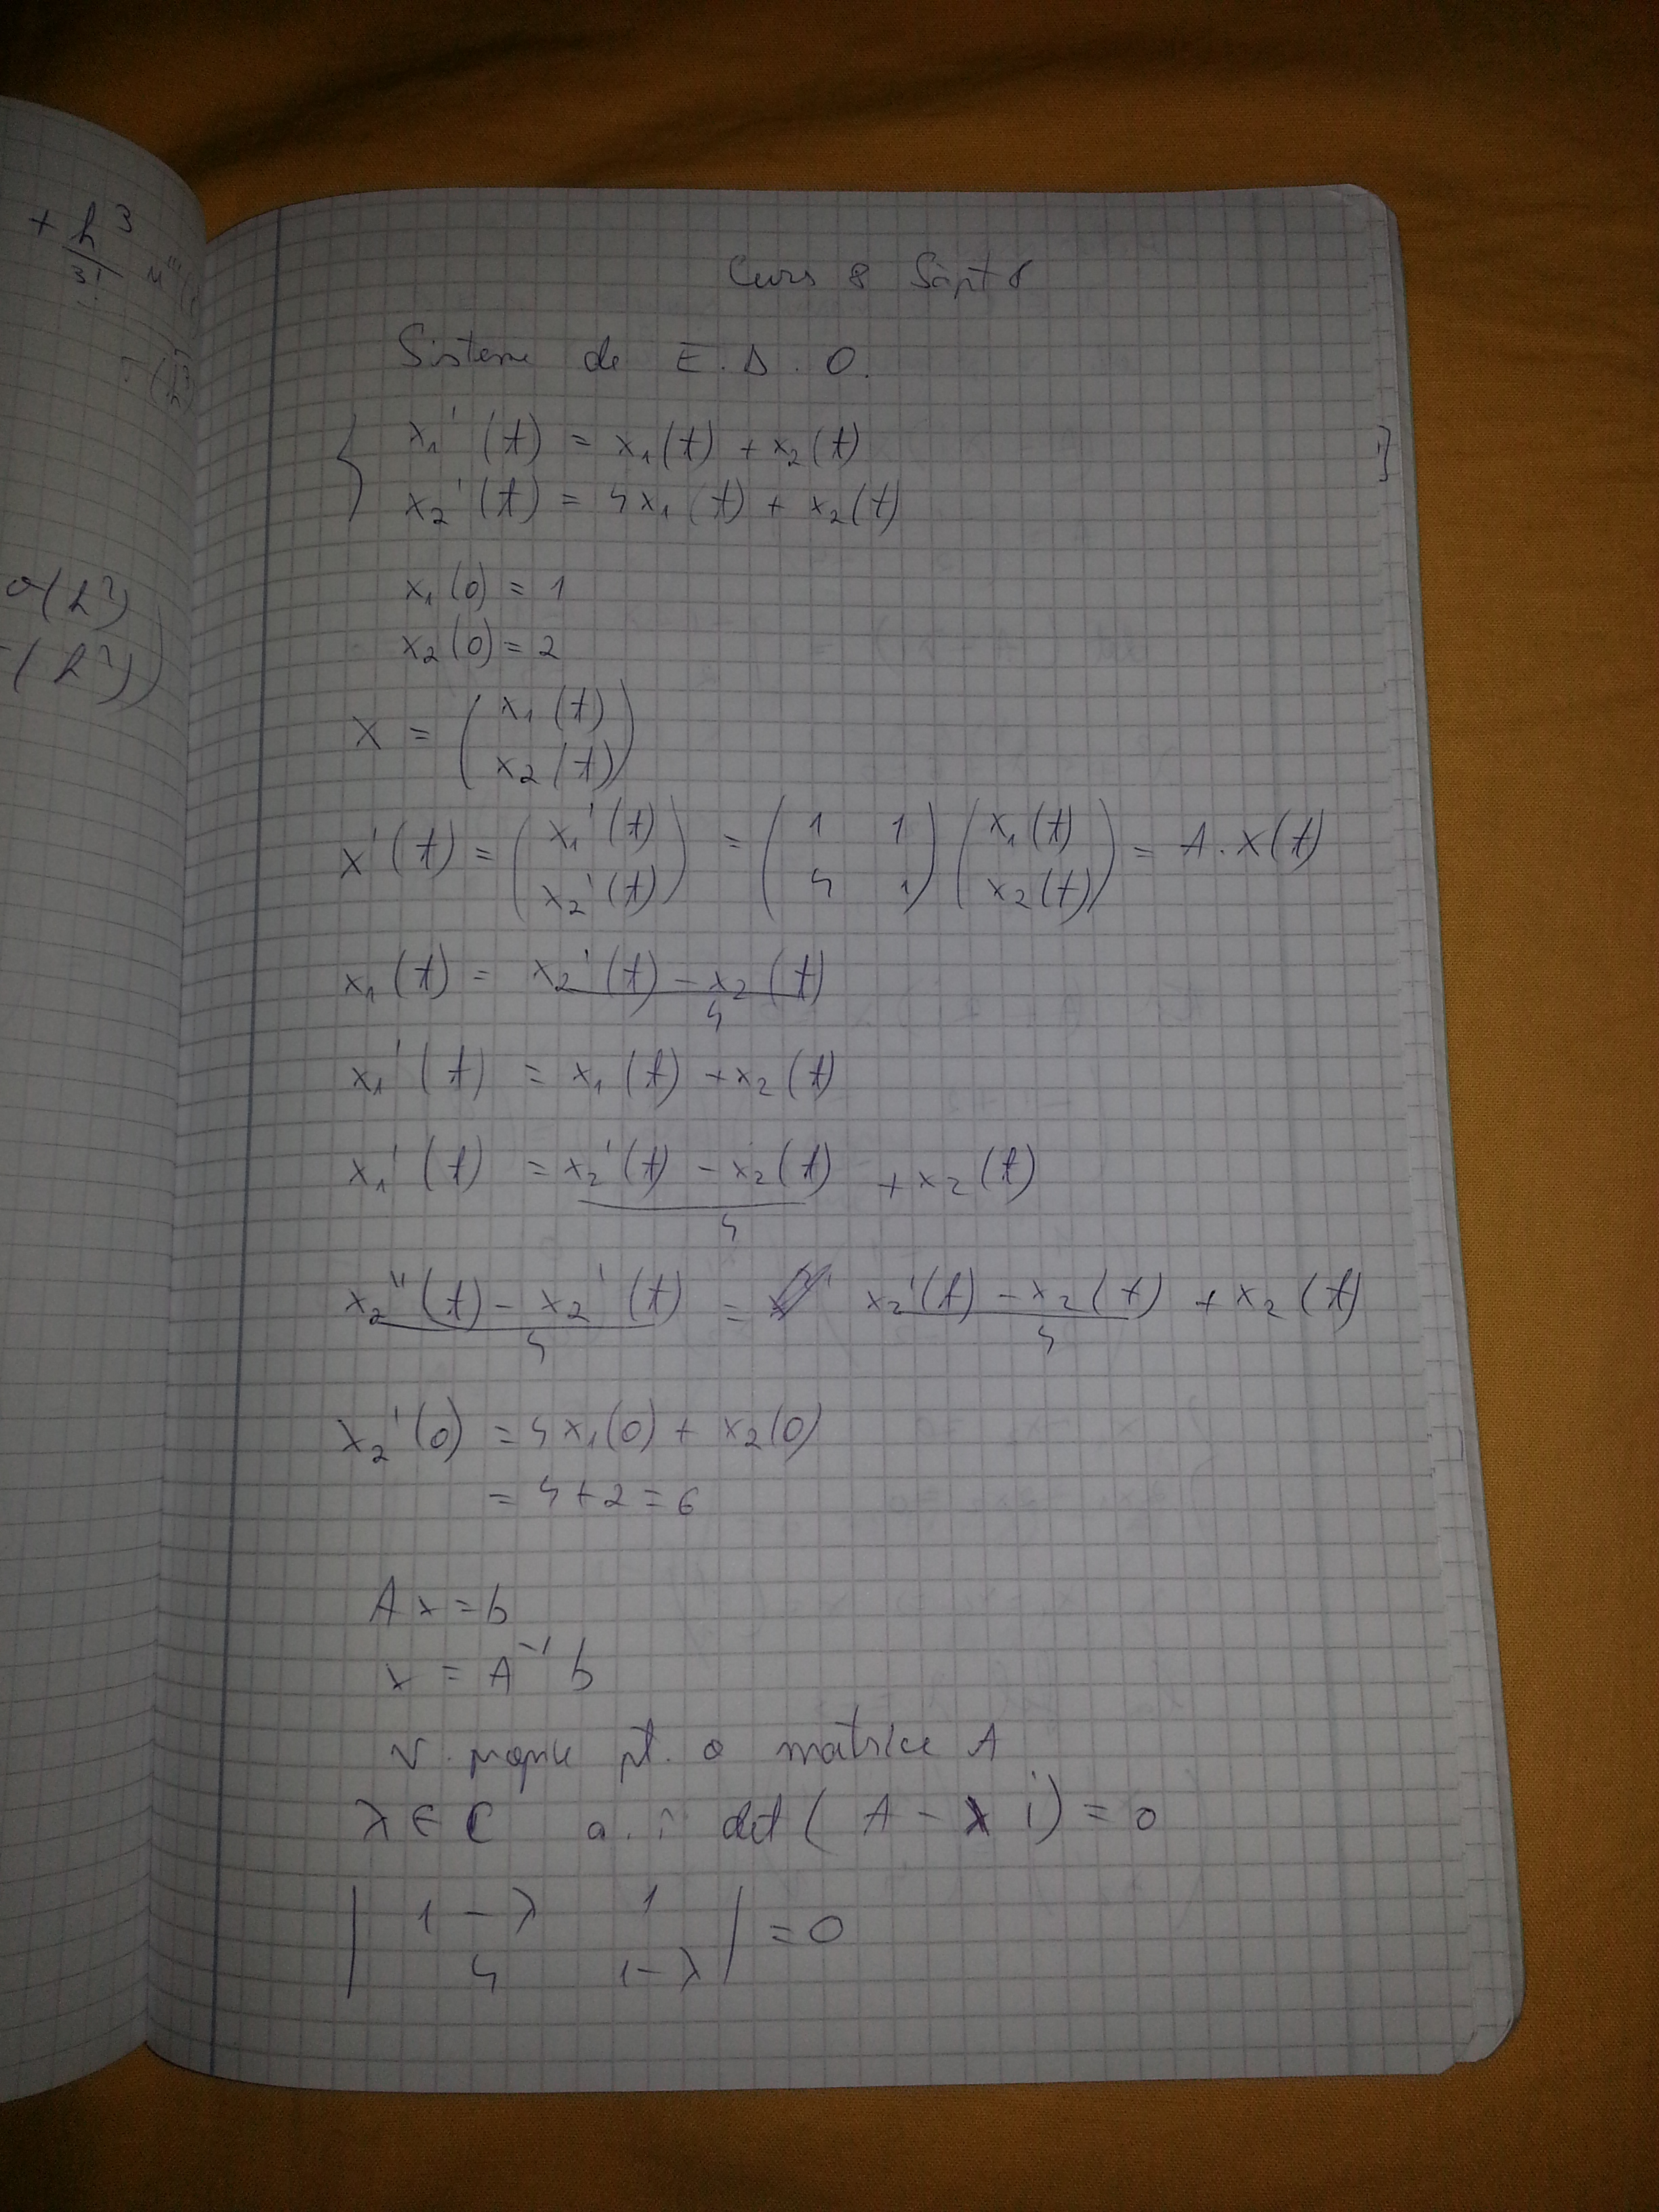 + h³/3! u'''(
(h³)
o(h²)
(h²))
Curs 8 Săpt 8
Sisteme de E.D.O.
{ x₁'(t) = x₁(t) + x₂(t)
x₂'(t) = 4x₁(t) + x₂(t)
x₁(0) = 1
x₂(0) = 2
X = ( x₁(t)
x₂(t) )
X'(t) = ( x₁'(t) x₂'(t) ) = ( 1 1 4 1 ) ( x₁(t) x₂(t) ) = A · X(t)
x₁(t) = (x₂'(t) - x₂(t))/4
x₁'(t) = x₁(t) + x₂(t)
x₁'(t) = (x₂'(t) - x₂(t))/4 + x₂(t)
(x₂''(t) - x₂'(t))/4 = (x₂'(t) - x₂(t))/4 + x₂(t)
x₂'(0) = 4x₁(0) + x₂(0)
= 4 + 2 = 6
Ax = b
x = A⁻¹ b
v. proprie pt. o matrice A
λ ∈ C a.î det( A - λ i) = 0
| 1 - λ 1
4 1 - λ | = 0